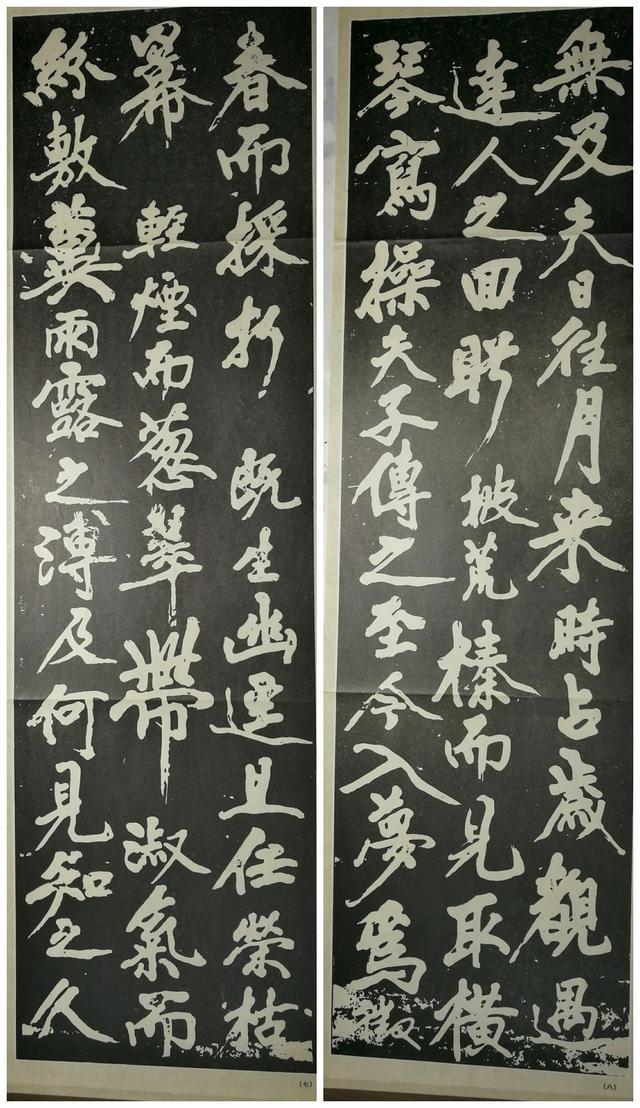 春而採折既生幽逕且任榮枯
羃輕煙而葱萃帶淑氣而
紛敷冀雨露之溥及何見知之久
(七)
無及夫日往月来時占歲觀遇
達人之回眄披荒榛而見取横
琴寫操夫子傳之至今入夢爲徵
(八)